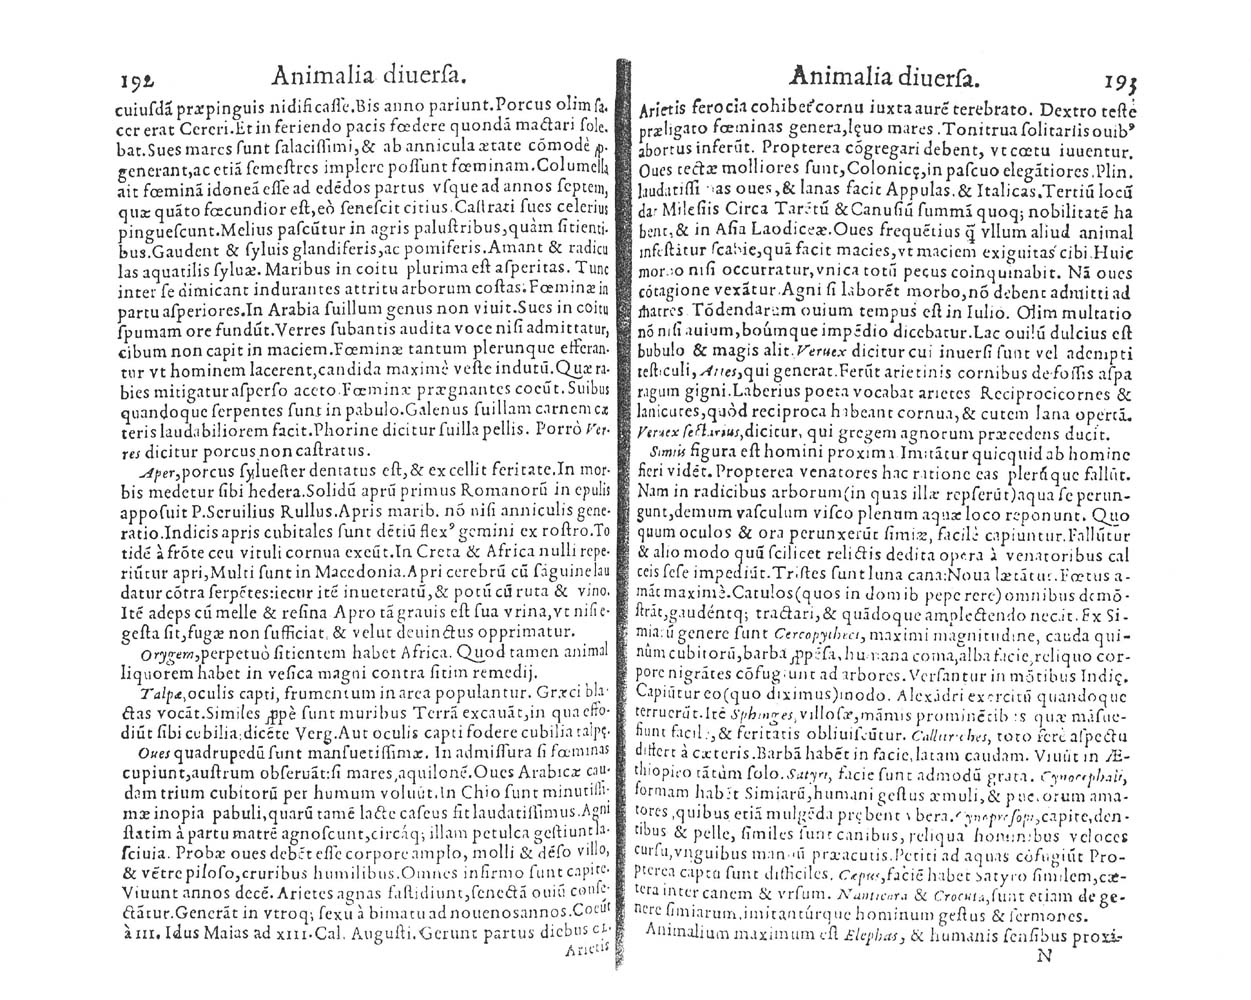 192 Animalia diuerſa.
cuiuſdã præpinguis nidificaſſe. Bis anno pariunt. Porcus olim ſa.
cer erat Cereri. Et in feriendo pacis fœdere quondã mactari ſole.
bat. Sues mares ſunt ſalaciſſimi, & ab annicula ætate cõmodè ꝓ.
generant, ac etiã ſemeſtres implere poſſunt fœminam. Columella
ait fœminã idoneã eſſe ad edẽdos partus vſque ad annos ſeptem,
quæ quãto fœcundior eſt, eò ſeneſcit citius. Caſtrati ſues celerius
pingueſcunt. Melius paſcũtur in agris paluſtribus, quàm ſitienti-
bus. Gaudent & ſyluis glandiferis, ac pomiferis. Amant & radicu
las aquatilis ſyluæ. Maribus in coitu plurima eſt aſperitas. Tunc
inter ſe dimicant indurantes attritu arborum coſtas: Fœminæ in
partu aſperiores. In Arabia ſuillum genus non viuit. Sues in coitu
ſpumam ore fundũt. Verres ſubantis audita voce niſi admittatur,
cibum non capit in maciem. Fœminæ tantum plerunque efferan-
tur vt hominem lacerent, candida maximè veſte indutũ. Quæ ra-
bies mitigatur aſperſo aceto. Fœminæ prægnantes coeũt. Suibus
quandoque ſerpentes ſunt in pabulo. Galenus ſuillam carnem cæ
teris laudabiliorem facit. Phorine dicitur ſuilla pellis. Porrò Ver-
res dicitur porcus non caſtratus.
Aper, porcus ſylueſter dentatus eſt, & excellit feritate. In mor-
bis medetur ſibi hedera. Solidũ aprũ primus Romanorũ in epulis
appoſuit P. Seruilius Rullus. Apris marib. nõ niſi anniculis gene-
ratio. Indicis apris cubitales ſunt dẽtiũ flexꝰ gemini ex roſtro. To
tidẽ à frõte ceu vituli cornua exeũt. In Creta & Africa nulli repe-
riũtur apri, Multi ſunt in Macedonia. Apri cerebrũ cũ ſãguine lau
datur cõtra ſerpẽtes: iecur itẽ inueteratũ, & potũ cũ ruta & vino.
Itẽ adeps cũ melle & reſina Apro tã grauis eſt ſua vrina, vt niſi e-
geſta ſit, fugæ non ſufficiat, & velut deuinctus opprimatur.
Orygem, perpetuò ſitientem habet Africa. Quod tamen animal
liquorem habet in veſica magni contra ſitim remedij.
Talpæ, oculis capti, frumentum in area populantur. Græci bla-
ctas vocãt. Similes ꝓpè ſunt muribus Terrã excauãt, in qua effo-
diũt ſibi cubilia: dicẽte Verg. Aut oculis capti fodere cubilia talpę.
Oues quadrupedũ ſunt manſuetiſſimæ. In admiſſura ſi fœminas
cupiunt, auſtrum obſeruãt: ſi mares, aquilonẽ. Oues Arabicæ cau-
dam trium cubitorũ per humum voluũt. In Chio ſunt minutiſſi-
mæ inopia pabuli, quarũ tamẽ lacte caſeus fit laudatiſſimus. Agni
ſtatim à partu matrẽ agnoſcunt, circãq; illam petulca geſtiunt la-
ſciuia. Probæ oues debẽt eſſe corpore amplo, molli & dẽſo villo,
& vẽtre piloſo, cruribus humilibus. Omnes infirmo ſunt capite.
Viuunt annos decẽ. Arietes agnas faſtidiunt, ſenectã ouiũ conſe-
ctãtur. Generãt in vtroq; ſexu à bimatu ad nouenos annos. Coeũt
à III. Idus Maias ad XIII. Cal. Auguſti. Gerunt partus diebus CL.
Arietis
Animalia diuerſa. 193
Arietis ferocia cohibet̃ cornu iuxta aurẽ terebrato. Dextro teſte
præligato fœminas genera, lęuo mares. Tonitrua ſolitariis ouibꝰ
abortus inferũt. Propterea cõgregari debent, vt cœtu iuuentur.
Oues tectæ molliores ſunt, Colonicę, in paſcuo elegãtiores. Plin.
laudatiſſi as oues, & lanas facit Appulas. & Italicas. Tertiũ locũ
dat Mileſiis Circa Tarẽtũ & Canuſiũ ſummã quoq; nobilitatẽ ha
bent, & in Aſia Laodiceæ. Oues frequẽtius q̃ vllum aliud animal
infeſtãtur ſcabie, quã facit macies, vt maciem exiguitas cibi. Huic
morbo niſi occurratur, vnica totũ pecus coinquinabit. Nã oues
cõtagione vexãtur. Agni ſi laborẽt morbo, nõ debent admitti ad
matres Tõdendarum ouium tempus eſt in Iulio. Olim multatio
nõ niſi auium, boúmque impẽdio dicebatur. Lac ouilũ dulcius eſt
bubulo & magis alit. Veruex dicitur cui inuerſi ſunt vel adempti
teſticuli, Aries, qui generat. Ferũt arietinis cornibus defoſſis aſpa
ragum gigni. Laberius poeta vocabat arietes Reciprocicornes &
lanicutes, quòd reciproca habeant cornua, & cutem lana opertã.
Veruex ſectarius, dicitur, qui gregem agnorum præcedens ducit.
Simiis figura eſt homini proxima Imitãtur quicquid ab homine
fieri vidẽt. Propterea venatores hac ratione eas plerũque fallũt.
Nam in radicibus arborum (in quas illæ repſerũt) aqua ſe perun-
gunt, demum vaſculum viſco plenum aquæ loco reponunt. Quo
quum oculos & ora perunxerũt ſimiæ, facilè capiuntur. Fallũtur
& alio modo quũ ſcilicet relictis dedita opera à venatoribus cal
ceis ſeſe impediũt. Triſtes ſunt luna caua: Noua lætãtur. Fœtus a-
mãt maximè. Catulos (quos in domib pepe rere) omnibus demõ-
ſtrãt, gaudẽntq; tractari, & quãdoque amplectendo necãt. Ex Si-
miarũ genere ſunt Cercopytheci, maximi magnitudine, cauda qui-
nûm cubitorũ, barba ꝓpẽſa, humana coma, alba facie, reliquo cor-
pore nigrãtes cõfugiunt ad arbores. Verſantur in mõtibus Indię.
Capiũtur eo (quo diximus) modo. Alexãdri exercitũ quandoque
terruerũt. Itẽ Sphinges, villoſæ, mãmis prominẽtibus quæ mãſue-
fiunt facilè, & feritatis obliuiſcũtur. Callitriches, toto ferè aſpectu
differt à cæteris. Barbã habẽt in facie, latam caudam. Viuũt in Æ-
thiopico tãtùm ſolo. Satyri, facie ſunt admodũ grata. Cynocephali,
formam habẽt Simiarũ, humani geſtus æmuli, & puerorum ama-
tores, quibus etiã mulgẽda prębent vbera. capite, den-
tibus & pelle, ſimiles ſunt canibus, reliqua hominibus veloces
curſu, vnguibus manuũ præacutis. Petiti ad aquas cõfugiũt Pro-
pterea captu ſunt difficiles. Cepus, faciẽ habet Satyro ſimilem, cæ-
tera inter canem & vrſum. Nanticora & Crocuta, ſunt etiam de ge-
nere ſimiarum, imitantúrque hominum geſtus & ſermones.
Animalium maximum eſt Elephas, & humanis ſenſibus proxi-
N